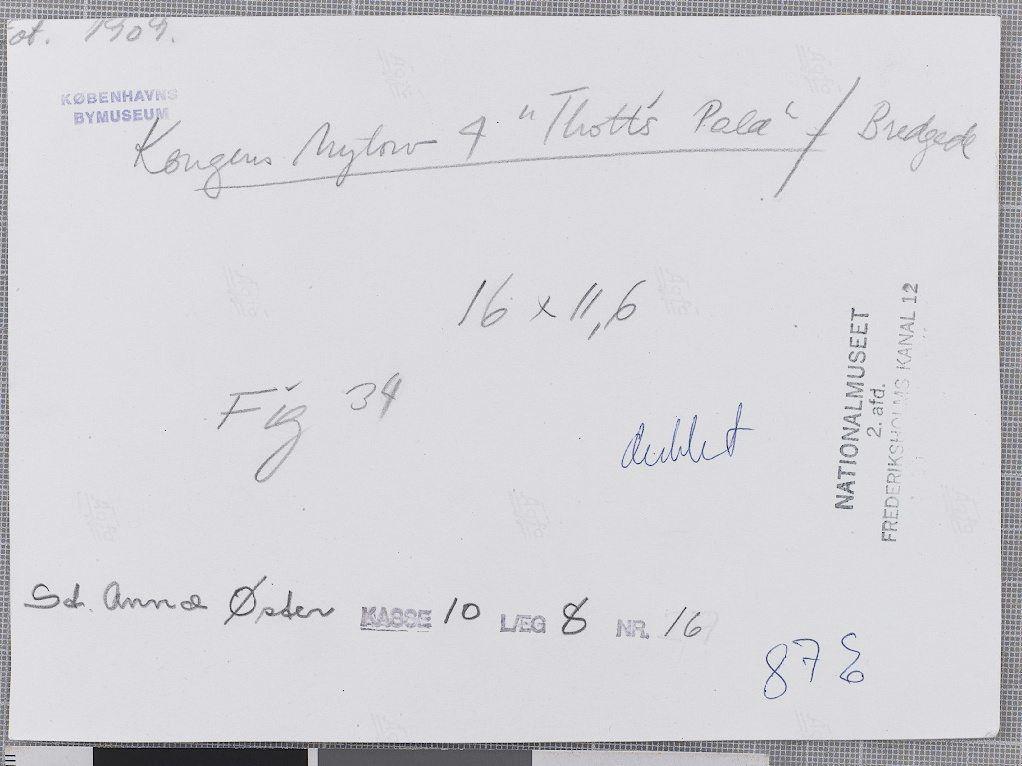 ot. 1909.
KØBENHAVNS
BYMUSEUM
Kongens Nytorv 4 "Thott's Palæ" / Bredgade
16 x 11,6
Fig 34
dublet
NATIONALMUSEET
2. afd.
FREDERIKSHOLMS KANAL 12
Sct. Annæ Øster KASSE 10 LÆG 8 NR. 16
87 E